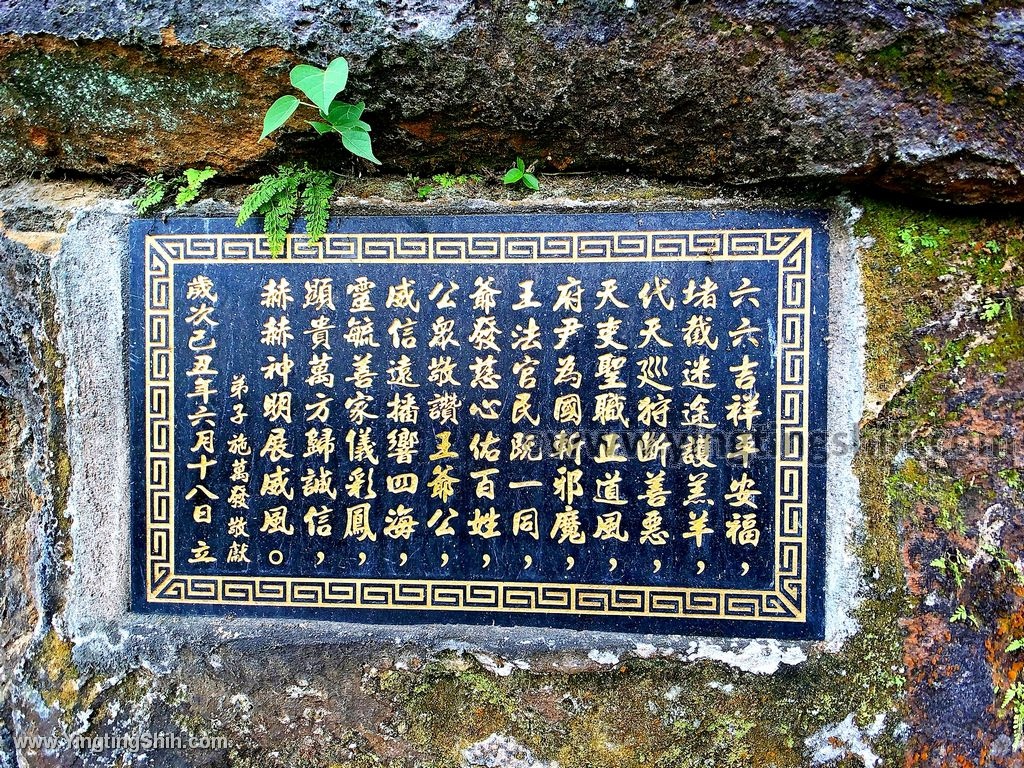 六六吉祥平安福，
堵截迷途護羔羊，
代天巡狩斷善惡，
天吏聖職正道風，
府尹為國斬邪魔，
王法官民院一同，
爺發慈心佑百姓，
公眾敬讚王爺公，
威信遠播響四海，
靈毓善家儀彩鳳，
顯貴萬方歸誠信，
赫赫神明展威風。
弟子施萬發敬獻
歲次己丑年六月十八日 立
www.YingtingShih.com
www.YingtingShih.com